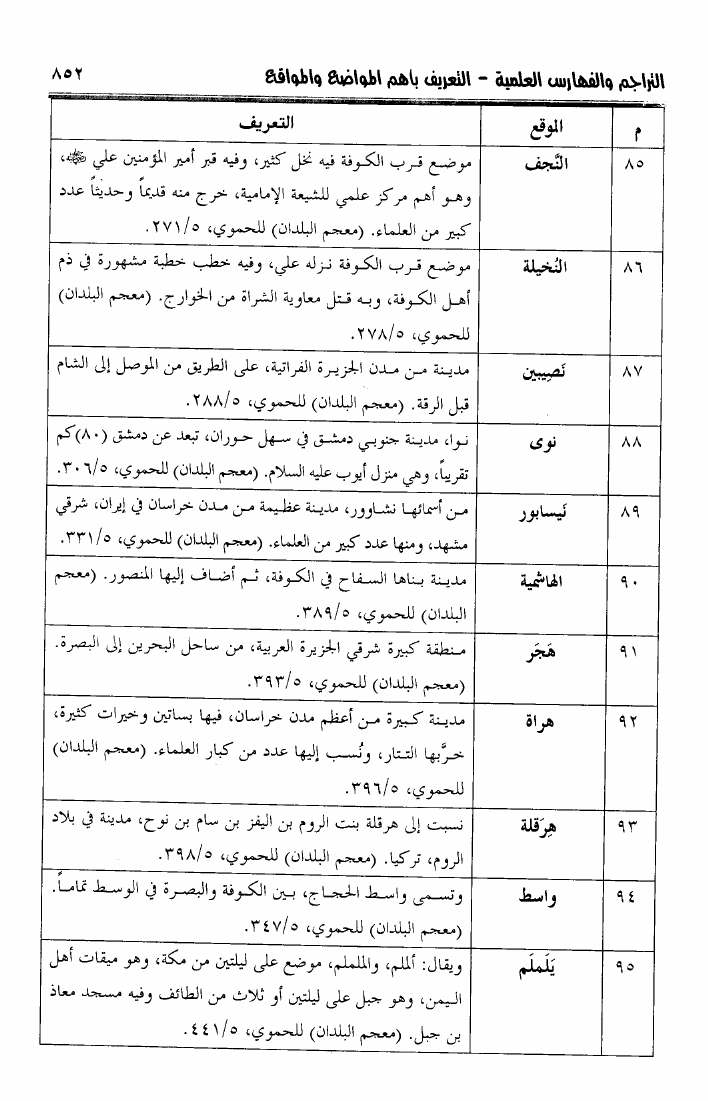 التراجم والفهارس العلمية - التعريف بأهم المواضع والمواقع ٨٥٢
م الموقع التعريف
٨٥ النَّجف موضع قرب الكوفة فيه نخل كثير، وفيه قبر أمير المؤمنين علي ﵁،
وهو أهم مركز علمي للشيعة الإمامية، خرج منه قديماً وحديثاً عدد
كبير من العلماء. (معجم البلدان) للحموي، ٢٧١/٥.
٨٦ النُخيلة موضع قرب الكوفة نزله علي، وفيه خطب خطبة مشهورة في ذم
أهل الكوفة، وبه قتل معاوية الشراة من الخوارج. (معجم البلدان)
للحموي، ٢٧٨/٥.
٨٧ نَصِيبين مدينة من مدن الجزيرة الفراتية، على الطريق من الموصل إلى الشام
قبل الرقة. (معجم البلدان) للحموي، ٢٨٨/٥.
٨٨ نوى نوا، مدينة جنوبي دمشق في سهل حوران، تبعد عن دمشق (٨٠)كم
تقريباً، وهي منزل أيوب عليه السلام. (معجم البلدان) للحموي، ٣٠٦/٥.
٨٩ نَيسابور من أسمائها نشاوور، مدينة عظيمة من مدن خراسان في إيران، شرقي
مشهد، ومنها عدد كبير من العلماء. (معجم البلدان) للحموي، ٣٣١/٥.
٩٠ الهاشمية مدينة بناها السفاح في الكوفة، ثم أضاف إليها المنصور. (معجم
البلدان) للحموي، ٣٨٩/٥.
٩١ هَجَر منطقة كبيرة شرقي الجزيرة العربية، من ساحل البحرين إلى البصرة.
(معجم البلدان) للحموي، ٣٩٣/٥.
٩٢ هراة مدينة كبيرة من أعظم مدن خراسان، فيها بساتين وخيرات كثيرة،
خرَّبها التتار، ونُسب إليها عدد من كبار العلماء. (معجم البلدان)
للحموي، ٣٩٦/٥.
٩٣ هِرَقلة نسبت إلى هرقلة بنت الروم بن اليفز بن سام بن نوح، مدينة في بلاد
الروم، تركيا. (معجم البلدان) للحموي، ٣٩٨/٥.
٩٤ واسط وتسمى واسط الحجاج، بين الكوفة والبصرة في الوسط تماماً.
(معجم البلدان) للحموي، ٣٤٧/٥.
٩٥ يَلَملَم ويقال: ألملم، والململم، موضع على ليلتين من مكة، وهو ميقات أهل
اليمن، وهو جبل على ليلتين أو ثلاث من الطائف وفيه مسجد معاذ
بن جبل. (معجم البلدان) للحموي، ٤٤١/٥.